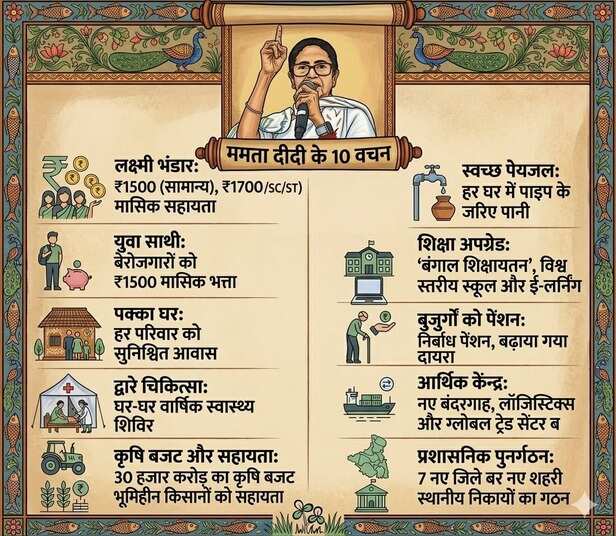 ममता दीदी के 10 वचन
लक्ष्मी भंडार:
₹1500 (सामान्य), ₹1700/SC/ST)
मासिक सहायता
युवा साथी:
बेरोजगारों को
₹1500 मासिक भत्ता
पक्का घर:
हर परिवार को
सुनिश्चित आवास
द्वारे चिकित्सा:
घर-घर वार्षिक स्वास्थ्य
शिविर
कृषि बजट और सहायता:
30 हजार करोड़ का कृषि बजट
भूमिहीन किसानों को सहायता
स्वच्छ पेयजल:
हर घर में पाइप के
जरिए पानी
शिक्षा अपग्रेड:
'बंगाल शिक्षायतन', विश्व
स्तरीय स्कूल और ई-लर्निंग
बुजुर्गों को पेंशन:
निर्बाध पेंशन, बढ़ाया गया
दायरा
आर्थिक केन्द्र:
नए बंदरगाह, लॉजिस्टिक्स
और ग्लोबल ट्रेड सेंटर ब
प्रशासनिक पुनर्गठन:
7 नए जिले बर नए शहरी
स्थानीय निकायों का गठन